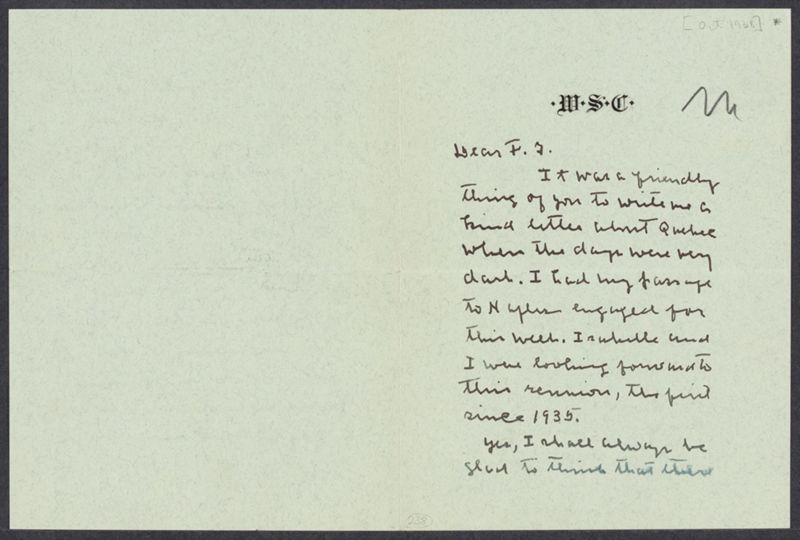 [Oct. 1938] *
·W·S·C·
Dear F. G.
It was a friendly
thing of you to write me a
kind letter about Quebec
when the days were very
dark. I had my passage
to Naples engaged for
this week. Isabelle and
I were looking forward to
this reunion, the first
since 1935.
Yes, I shall always be
glad to think that there
238